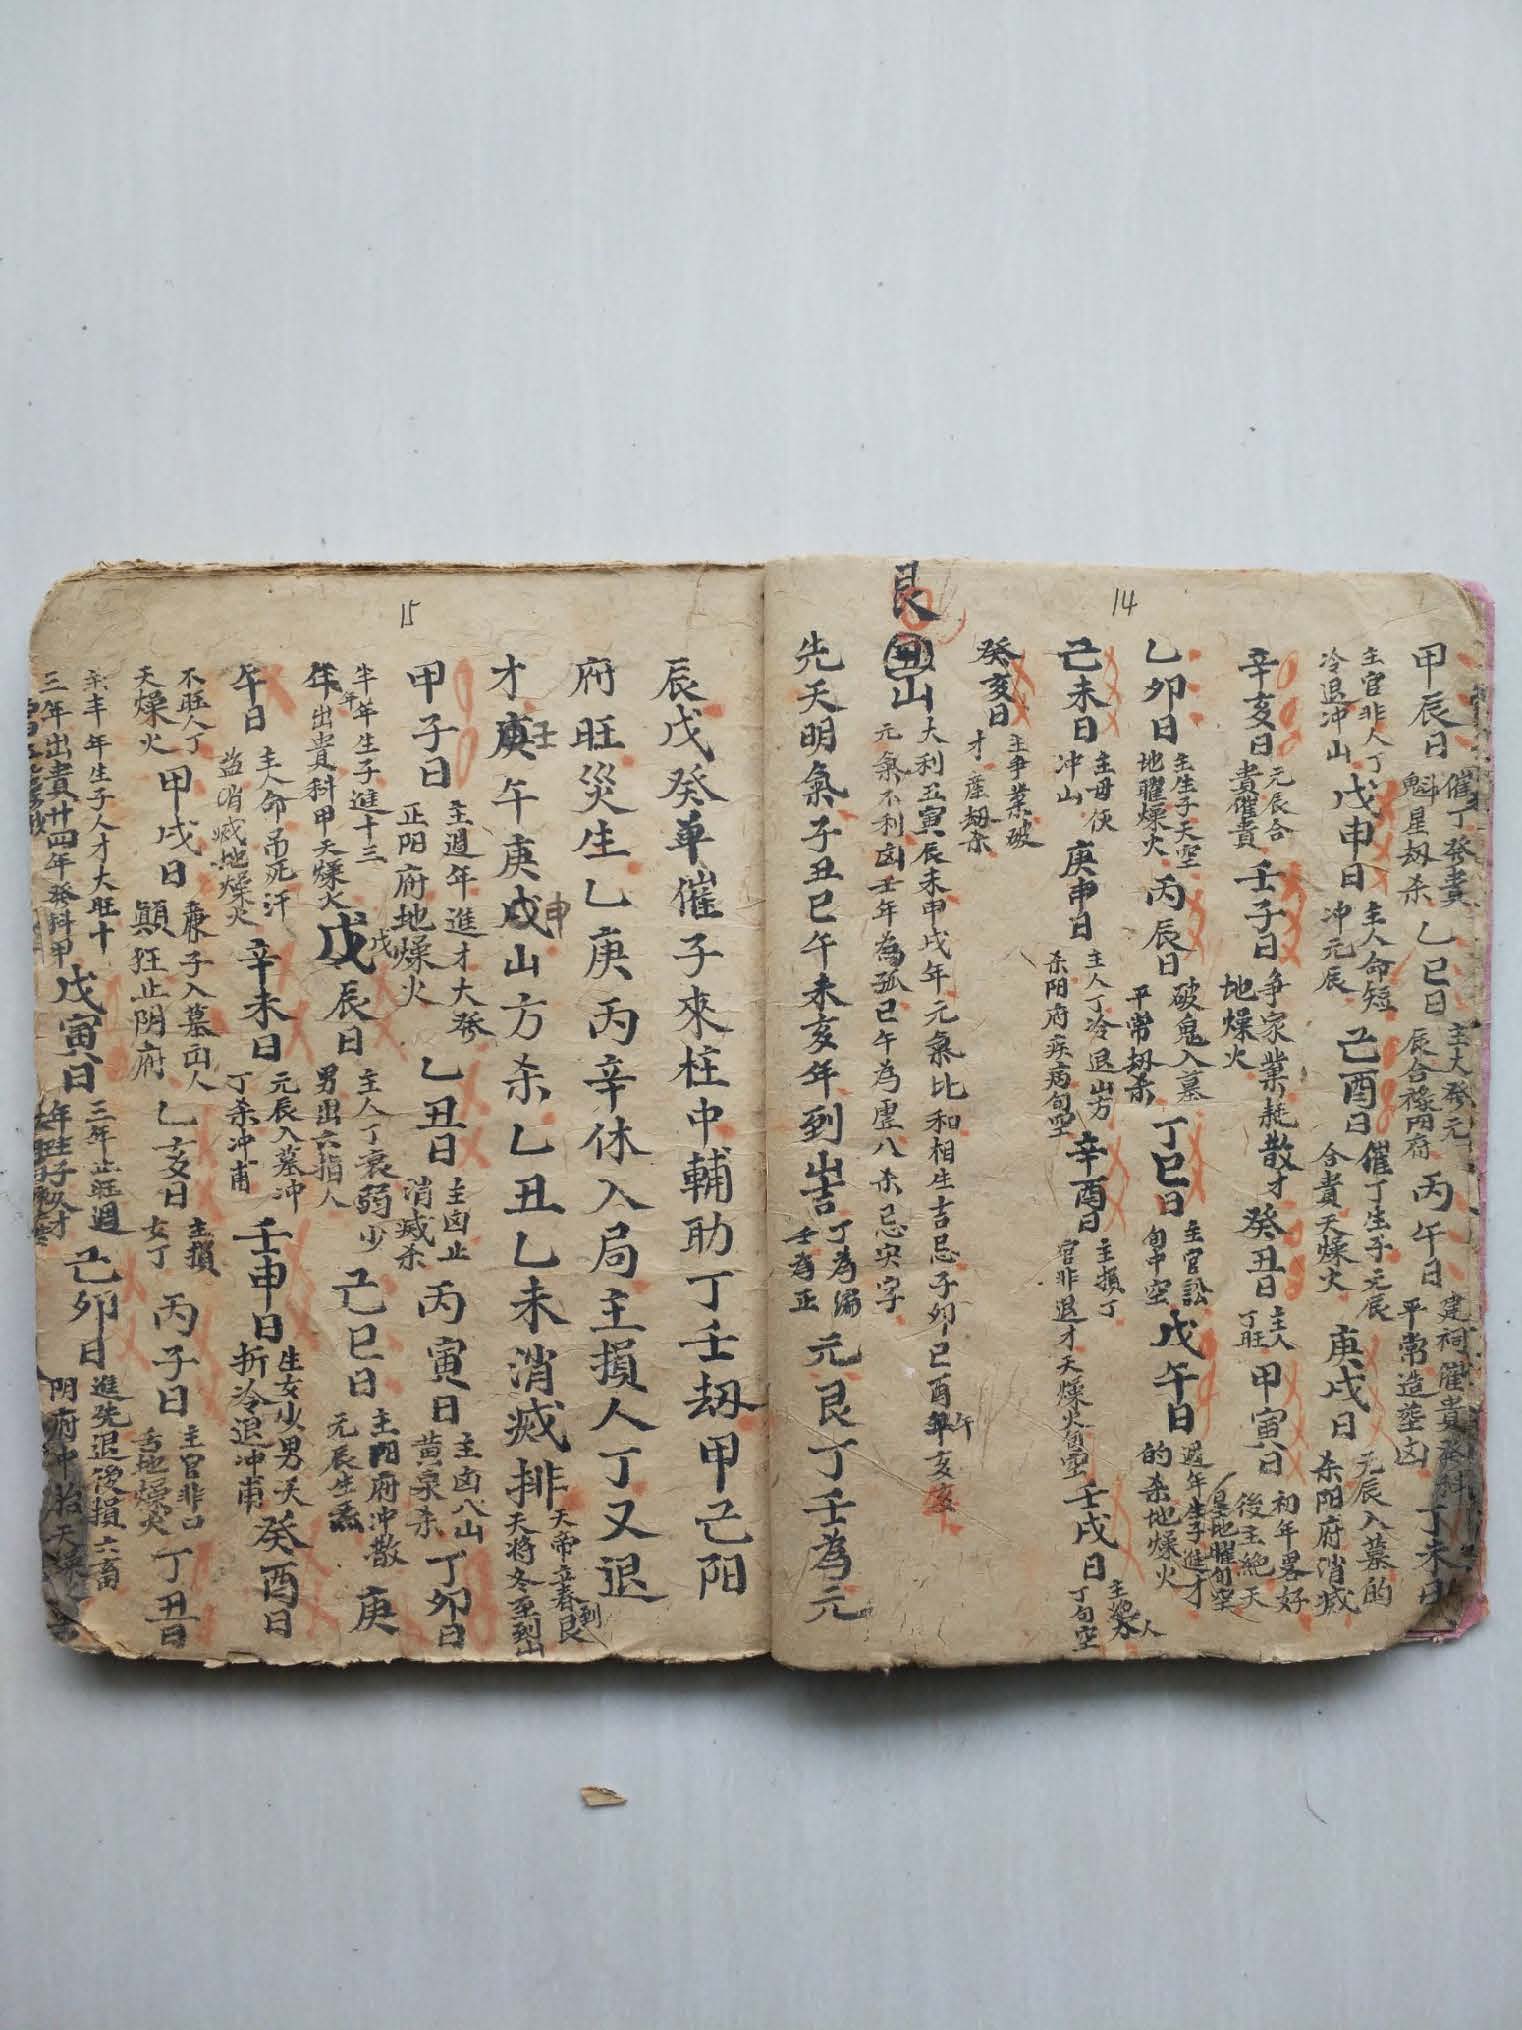 14
甲辰日 催丁發貴 魁星刼杀 乙巳日 主大發元 辰合祿阴府 丙午日 建祠催貴發科 平常造塟凶 丁未日
主官非人丁 冷退冲山 戊申日 主人命短 冲元辰 己酉日 催丁生子元辰 合貴天燥火 庚戌日 元辰入墓的 杀阳府消滅
辛亥日 元辰合 貴催貴 壬子日 争家業耗散才 地燥火 癸丑日 主人 丁旺 甲寅日 初年畧好 後主絶天 皇地曜旬空
乙卯日 主生子天空 地曜燥火 丙辰日 破鬼入墓 平常刼杀 丁巳日 主官訟 旬中空 戊午日 過年生子進才 的杀地燥火
己未日 主毋侠 冲山 庚申日 主人丁冷退山方 杀阳府疾病旬空 辛酉日 主損丁 官非退才天燥火旬空 壬戌日 主 人 丁旬空
癸亥日 主争業破 才産刼杀
艮丑山 大利丑寅辰未申戌年元氣比和相生吉忌子卯巳酉午年亥 元氣不利凶壬年為孤己午為虚八杀忌寅字
先天明氣子丑巳午未亥年到山吉 丁為漏 壬為正 元艮丁壬為元
15
辰戊癸单催子來柱中輔助丁壬刼甲己阳
府旺災生乙庚丙辛休入局主損人丁又退
才庚壬午庚戌申山方杀乙丑乙未消滅排 天帝立春到艮 天将冬至到山
甲子日 主過年進才大發 正阳府地燥火 乙丑日 主凶止 消滅杀 丙寅日 主凶八山 黄泉杀 丁卯日
半年年生子進十三 年出貴科甲天燥火 戊辰日 主人丁衰弱少 男出六指人 己巳日 主阳府冲散 元辰生氣 庚
午日 主人命吊死汗 益消滅地燥火 辛未日 元辰入墓冲 丁杀冲甫 壬申日 生女少男夭 折冷退冲甫 癸酉日
不旺人丁 天燥火 甲戌日 康子入墓出人 顛狂止阴府 乙亥日 主損 女丁 丙子日 主官非口 舌地燥火 丁丑日
年年生子人才大旺十 三年出貴廿四年發科甲 戊寅日 三年止旺過 己卯日 進先退後損六畜 阴府冲